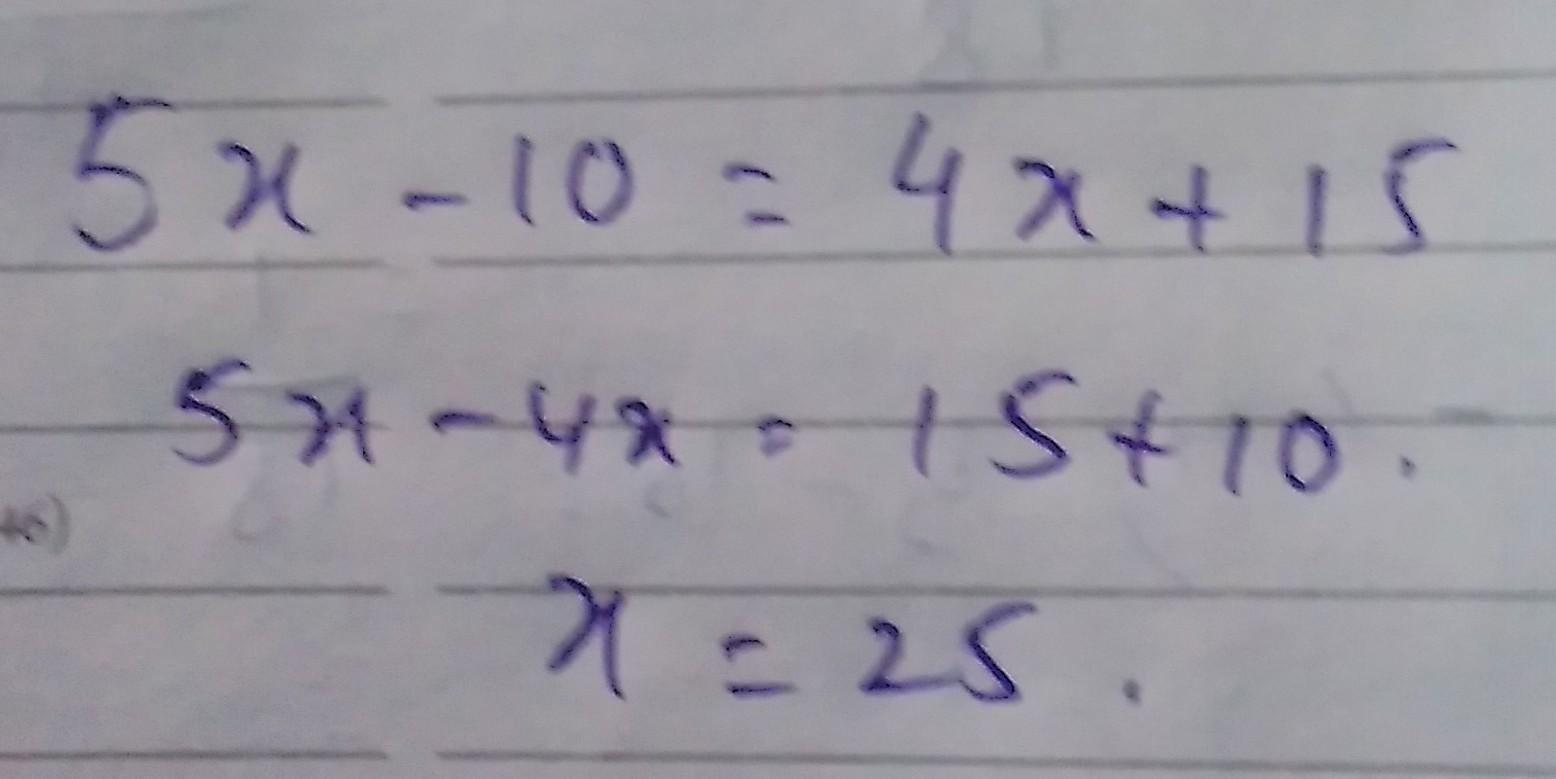 5x - 10 = 4x + 15
5x - 4x = 15 + 10.
x = 25.